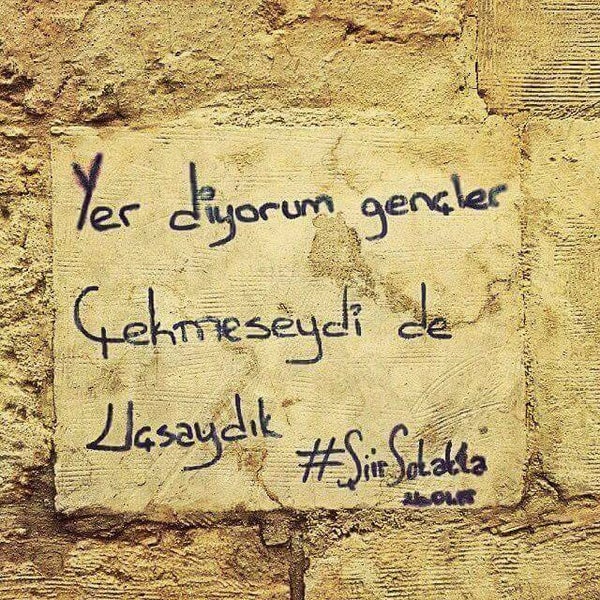 Yer diyorum gençler
Çekmeseydi de
Uçsaydık
#ŞiirSokakta